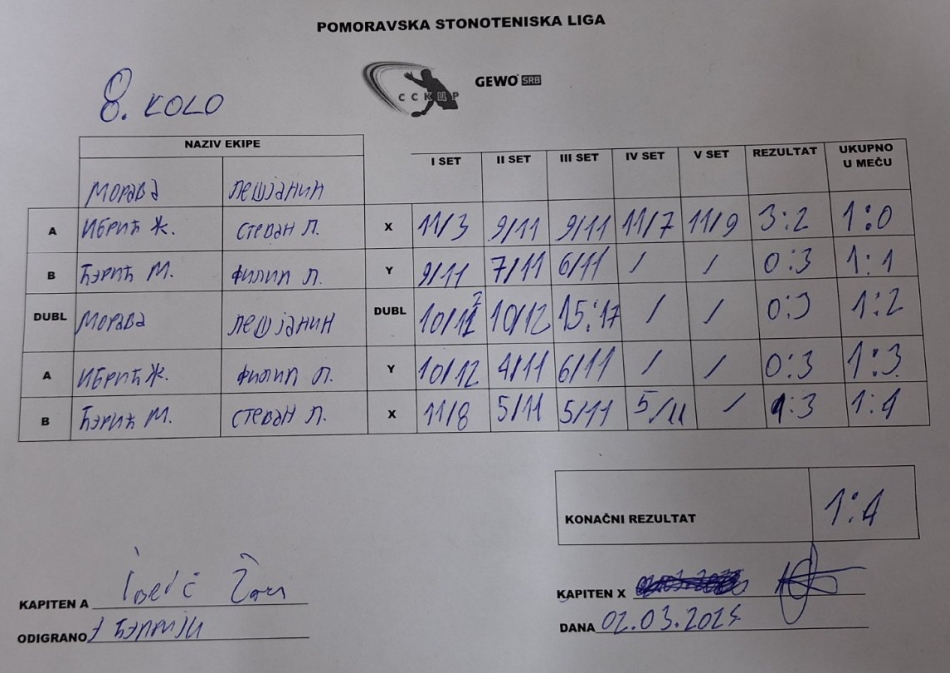 POMORAVSKA STONOTENISKA LIGA
ССКЦР GEWO SRB
8. KOLO
NAZIV EKIPE I SET II SET III SET IV SET V SET REZULTAT UKUPNO U MEČU
МОРАВА ЛЕШЈАНИН
A ИБРИЋ Ж. СТЕВАН Л. X 11/3 9/11 9/11 11/7 11/9 3:2 1:0
B ЂЭРИЋ М. ФИЛИП Л. Y 9/11 7/11 6/11 / / 0:3 1:1
DUBL МОРАВА ЛЕШЈАНИН DUBL 10/12 10/12 15:17 / / 0:3 1:2
A ИБРИЋ Ж. ФИЛИП Л. Y 10/12 4/11 6/11 / / 0:3 1:3
B ЂЭРИЋ М. СТЕВАН Л. X 11/8 5/11 5/11 5/11 / 1:3 1:4
KONAČNI REZULTAT 1:4
KAPITEN A
KAPITEN X
ODIGRANO
DANA 02.03.2025